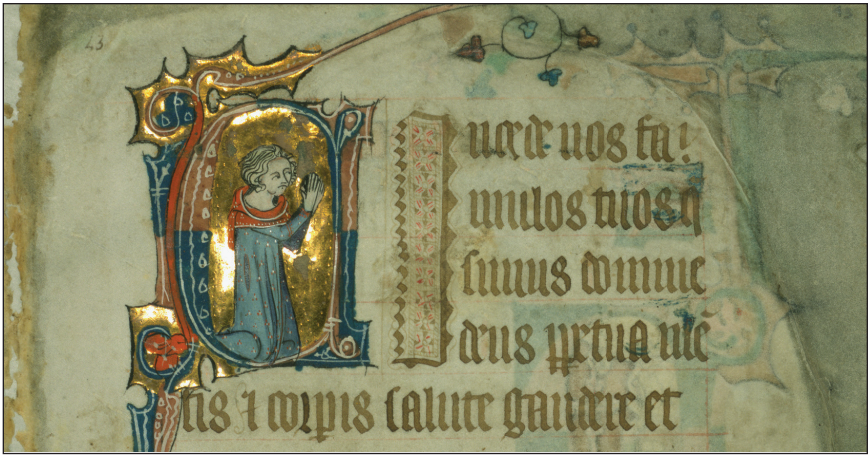 43
ncede nos fa⸗
mulos tuos q̄
sumus domine
deus ꝑpetua mē
tis ⁊ corꝑis salute gaudere et